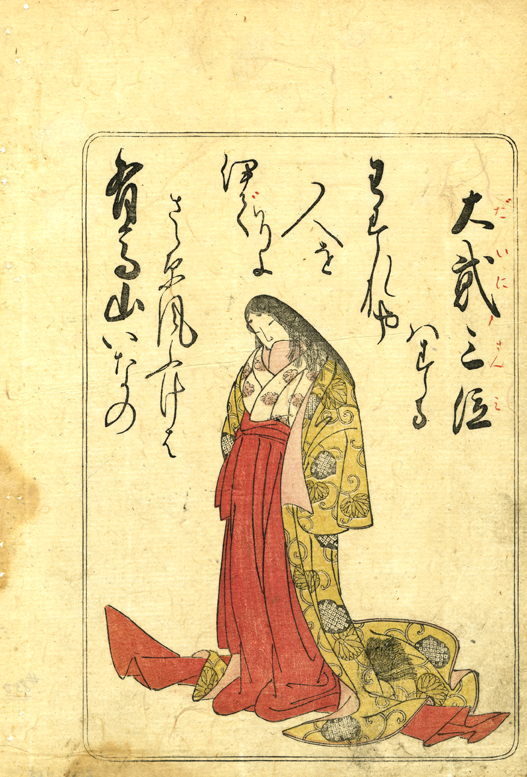 大貳三位
だいにのさんみ
有馬山いなの
さゝ原風ふけは
伊でそよ
人を
わすれや
はする